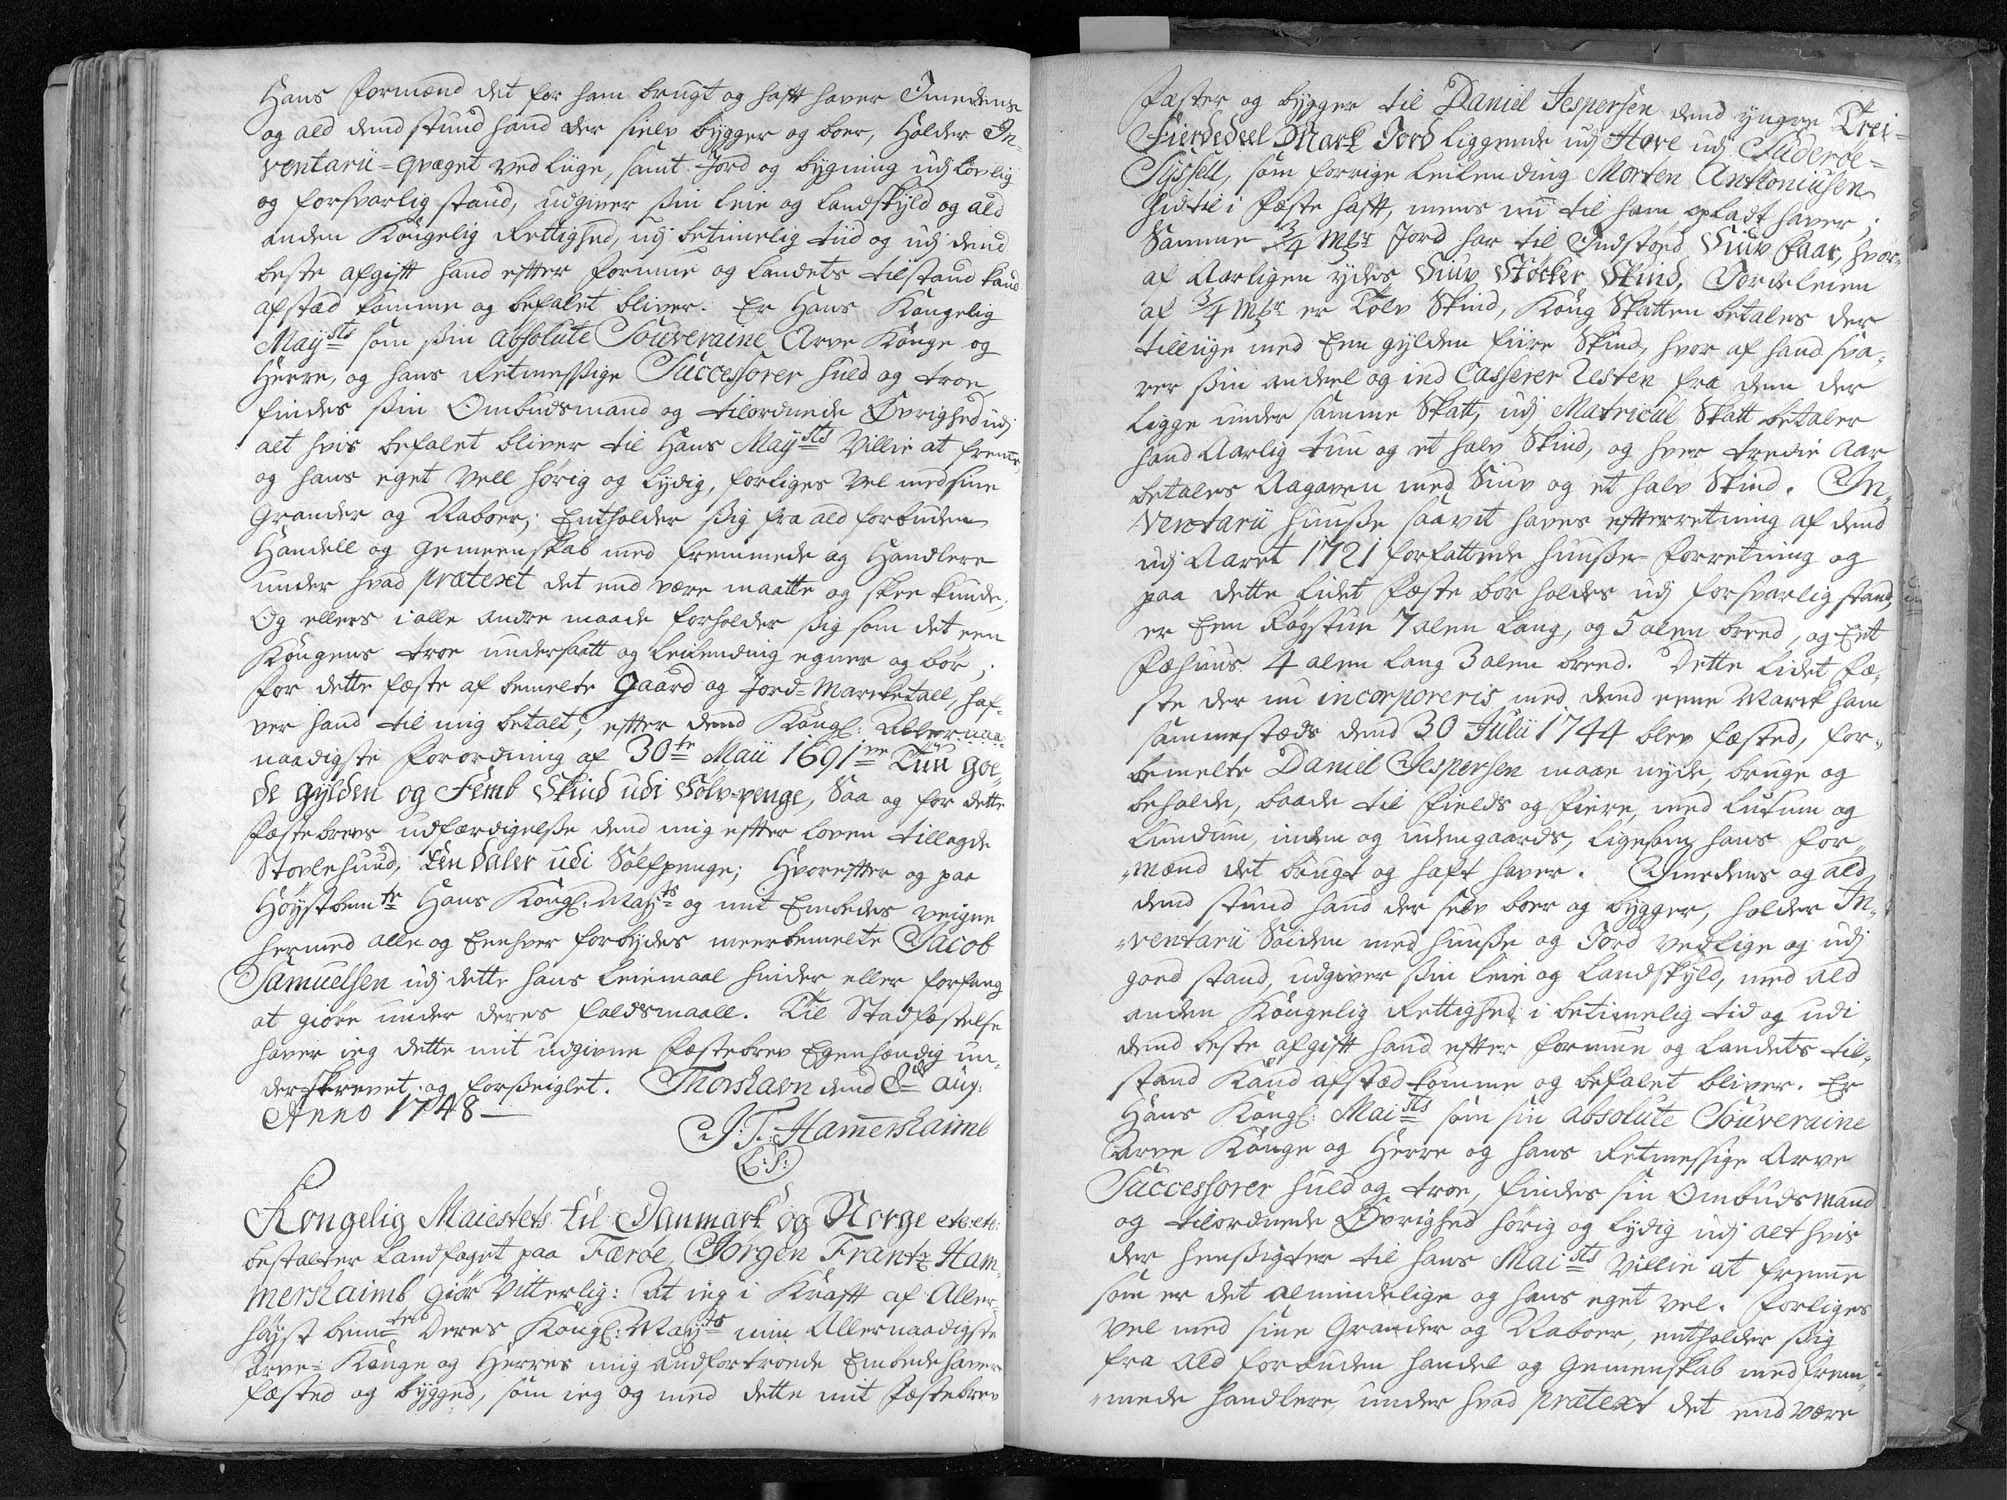 Hans Formænd det for ham brugt og hafft haver Imedens
og ald dend stund hand der sielv bygger og boer, Holder In-
ventarii-qvæget ved liige, samt Jord og bygning udj lovlig
og forsvarlig stand, udgiver ßin leie og Landskyld og ald
anden Kongelig Rettighed, udj betimelig tiid og udj dend
beste afgifft hand effter formue og Landets tilstand kand
afsted komme og befalet bliver. Er Hans Kongelig
Mayßts som ßin absolute Souveraine Arve Konge og
Herre, og hans Retmessige Successorer huld og troe,
findes ßin Ombudsmand og tilordnede Øvrighed udj
alt hvis befalet bliver til Hans Maysts Villie at fremme
og hans eget Vell hørig og lydig, forliges Vel med sine
Grander og Naboer; Entholder ßig fra ald forbuden
Handell og Gemeenskab med fremmede og Handlere
under hvad prætext det end være maatte og skee kunde,
Og ellers i alle andre maade forholder ßig som det een
Kongens troe undersaatt og leilending egner og bør;
for dette fæste af bemelte Gaard og Jord-Marcketall, haf-
ver hand til mig betalt, effter dend Kongl: Allernaa-
naadigste forordning af 30te Maii 1691ne Tuu goe-
de gylden og Femb Skind udi Sölv-penge, Saa og for dette
Fæstebrevs udfærdigelße dend mig effter loven tillagde
Stovlehuud, Een daler udi Sölfpenge; Hvoreffter og paa
Høystbemte Hans Kongl: Mayts og mit Embedes veigne
hermed alle og Eenhver forbydes meerbemelte Jacob
Samuelsen udj dette hans leiemaal hinder eller forfang
at giöre under deres faldsmaall. Til Stadfæstelse
haver ieg dette mit udgivne Fæstebrev Egenhændig un-
derskrevet og forßeiglet. Thorshavn dend 8de Aug:
Anno 1748
J: F: Hammershaimb
(L: S:)
Kongelig Maiestets til Danmark og Norge etc: etc:
bestalter Landfoget paa Færöe, Jörgen Frantz Ham-
mershaimb giör Vitterlig: At ieg i Krafft af Aller-
høyst bemtes Deres Kongl: Mayts min Allernaadigste
Arve-Konge og Herres mig andfortroede Embede haver
fæsted og bygged, som ieg og med dette mit Fæstebrev
Fæster og bygger til Daniel Jespersen dend yngre Trei-
Fierdedeel Mark Jord liggende udj Hove udj Suderöe-
Syssell, som forrige Leilending Morten Anthoniusen
hidtil i Fæste hafft, mens nu til ham opladt haver;
Samme 3/4 Mkr Jord har til Indstød Siuv Faar, hvor-
af Aarligen ydes Siuv Støcker Skind, Jordeleien
af 3/4 Mkr er Tolv Skind, Kong Skatten betales der
tilliige med Een gylden fiire Skind, hvor af hand sva-
rer ßin andeel og ind Casserer Resten fra dem der
ligge under samme Skatt, udj Matricul Skatt betaler
hand Aarlig tuu og et halv Skind, og hver tredie Aar
betales Aagaven med Siuv og et halv Skind. In-
ventarii Huuße saavit haves effterretning af dend
udj Aaret 1721 forfattede huußes forretning og
paa dette lidet fæste bør holdes udj forsvarlig stand,
er Een Røgstue 7 alen lang, og 5 alen breed, og Eet
Fæhuus 4 alen lang 3 alen breed. Dette lidet fæ-
ste der nu incorporeris med dend eene Marck ham
sammesteds dend 30 Julii 1744 blev fæsted, for-
bemelte Daniel Jespersen maae nyde, bruge og
beholde, baade til Fields og Fiere, med luttum og
lundum, inden og uden gaards, ligesom hans For-
mænd det brugt og haft haver. Imedens og ald
dend stund hand der selv boer og bygger, holder In-
ventarii Söiden med huuße og Jord vedlige og udj
goed stand, udgiver ßin leie og Landskyld, med ald
anden Kongelig Rettighed i betimelig tid og udi
dend beste afgifft hand effter formue og Landets til-
stand kand afsted komme og befalet bliver. Er
Hans Kongl: Maists som sin absolute Souveraine
Arve Konge og Herre og hans Retmessige Arve
Successorer huld og troe, findes sin Ombudsmand
og tilordnede Øvrighed hørig og lydig udj alt hvis
der henßigter til hans Maists Villie at fremme
som er det almindelige og hans eget vel. Forliges
vel med sine Grander og Naboer, entholder ßig
fra ald forbuden Handel og Gemenskab med frem-
mede Handlere, under hvad prætext det end være